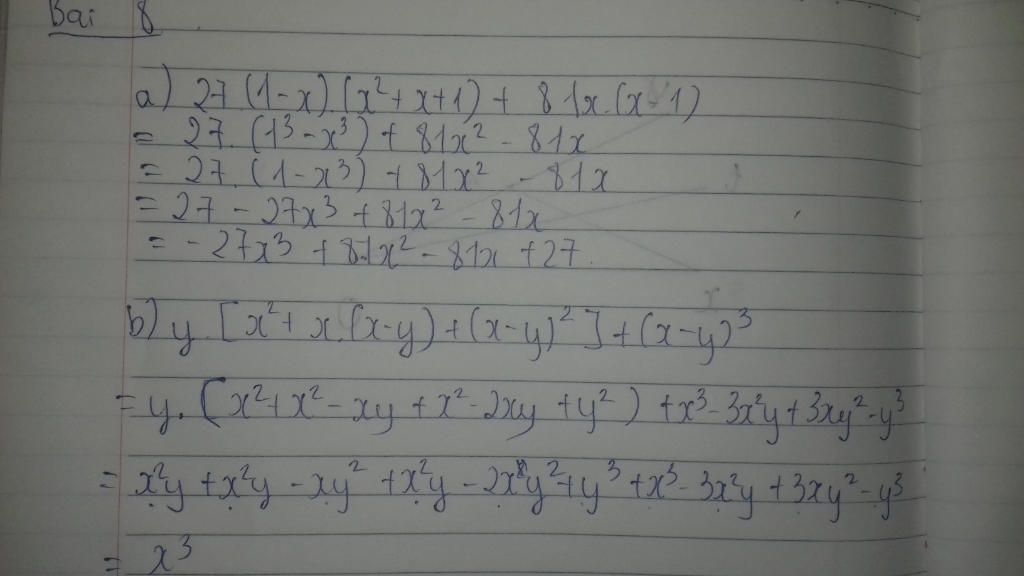 Bài 8
a) 27.(1-x)(x²+x+1) + 81x.(x-1)
= 27.(1³-x³) + 81x² - 81x
= 27.(1-x³) + 81x² - 81x
= 27 - 27x³ + 81x² - 81x
= -27x³ + 81x² - 81x + 27.
b) y.[x²+x.(x-y)+(x-y)²]+(x-y)³
= y.(x²+x²-xy+x²-2xy+y²) +x³-3x²y+3xy²-y³
= x²y +x²y -xy² +x²y -2xy²+y³ +x³-3x²y+3xy²-y³
= x³